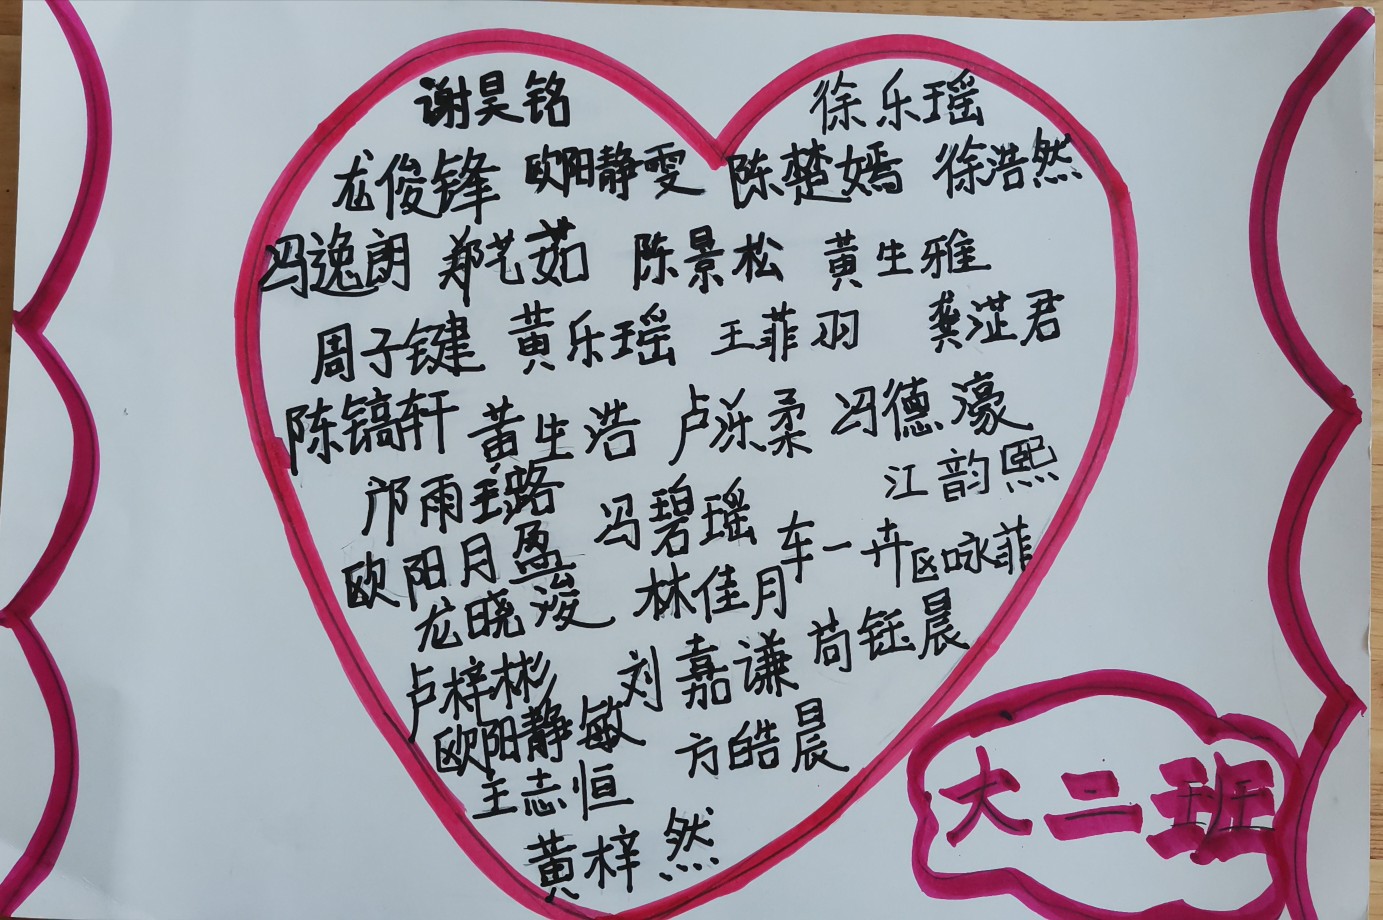 谢昊铭 徐乐瑶
龙俊锋 欧阳静雯 陈楚嫣 徐浩然
冯逸朗 郑艺茹 陈景松 黄生雅
周子键 黄乐瑶 王菲羽 龚淽君
陈镐轩 黄生浩 卢泺柔 冯德濠
邝雨璐 冯碧瑶 江韵熙
欧阳月盈 林佳月 车一卉 区咏菲
龙晓浚
卢梓彬 刘嘉谦 苟钰晨
欧阳静敏 方皓晨
王志恒
黄梓然
大二班